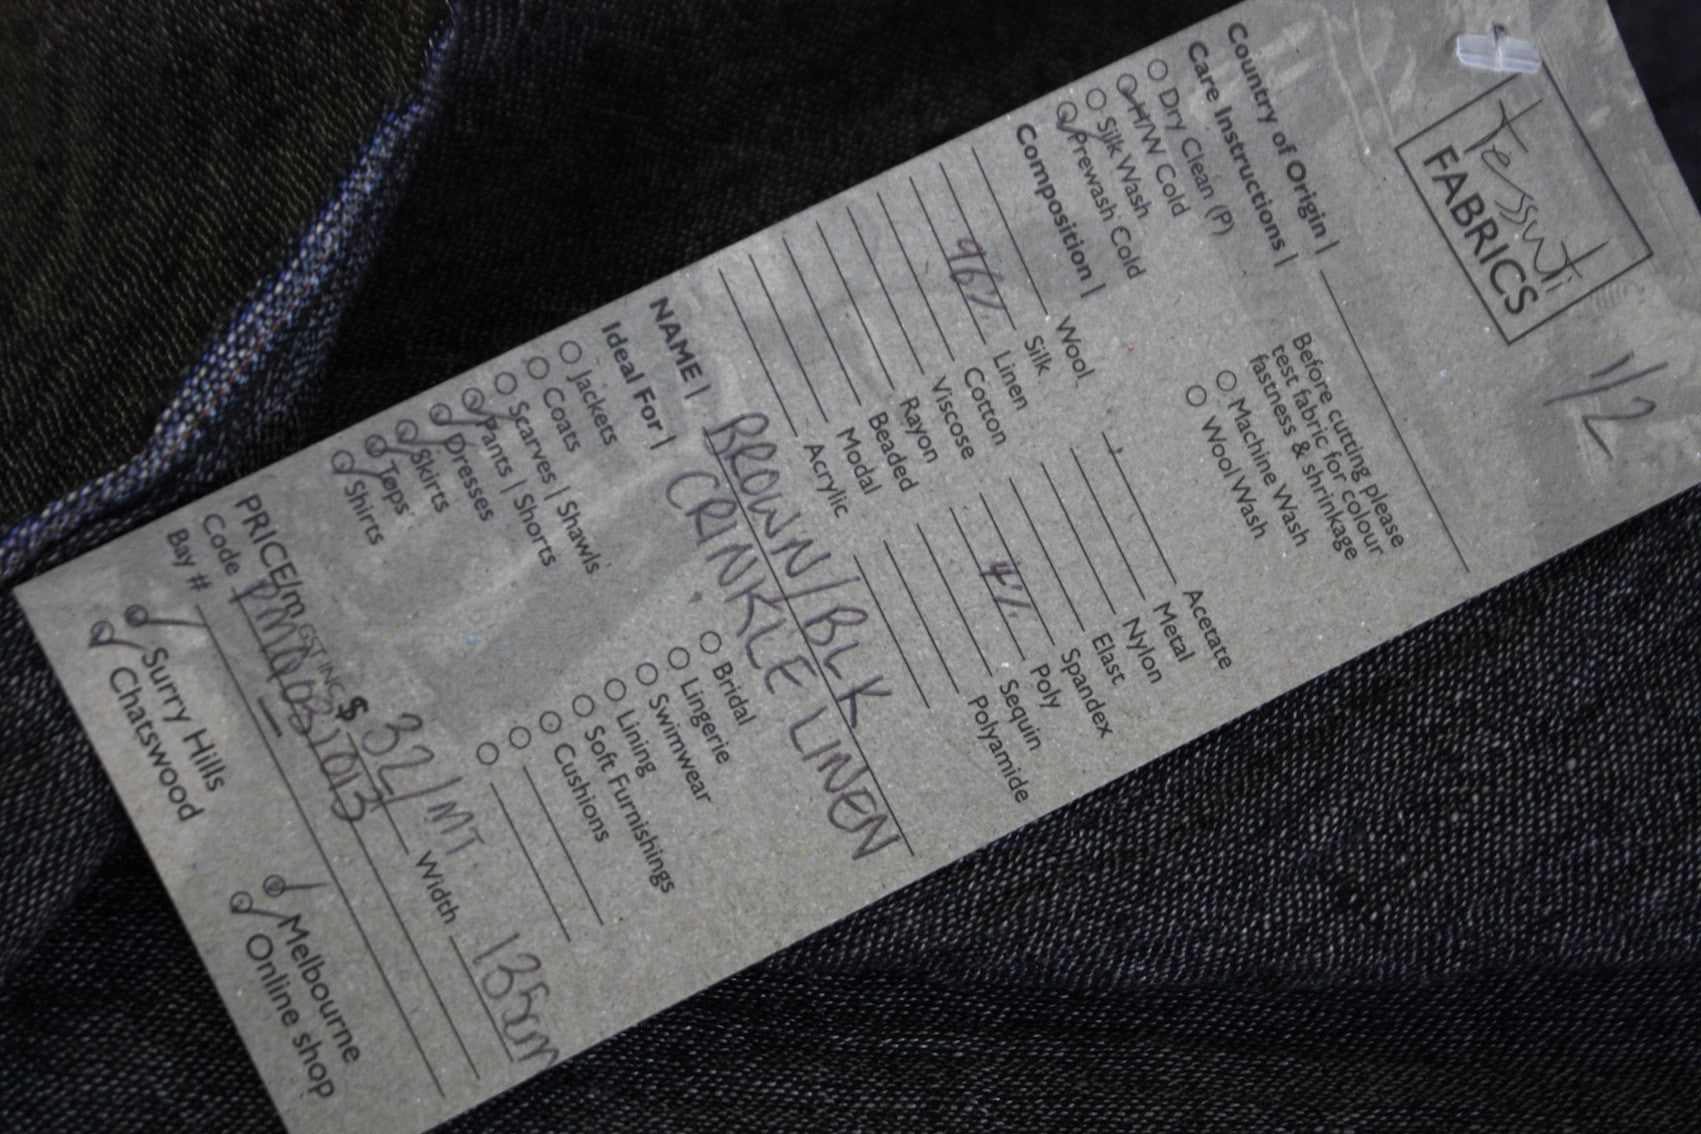 Tessuti
FABRICS
1/2
Country of Origin |
Care Instructions |
Before cutting please
test fabric for colour
fastness & shrinkage
Dry Clean (P)
H/W Cold
Silk Wash
Prewash Cold
Machine Wash
Wool Wash
Composition |
Wool Acetate
Silk Metal
96% Linen Nylon
Cotton Elast.
Viscose Spandex
Rayon 4% Poly
Beaded Sequin
Modal Polyamide
Acrylic
NAME | BROWN/BLK
CRINKLE LINEN
Ideal For |
Jackets
Coats
Scarves | Shawls
Pants | Shorts
Dresses
Skirts
Tops
Shirts
Bridal
Lingerie
Swimwear
Lining
Soft Furnishings
Cushions
PRICE/m GST INC $ 32/MT. Width 135cm
Code
Bay #
Surry Hills Melbourne
Chatswood Online shop